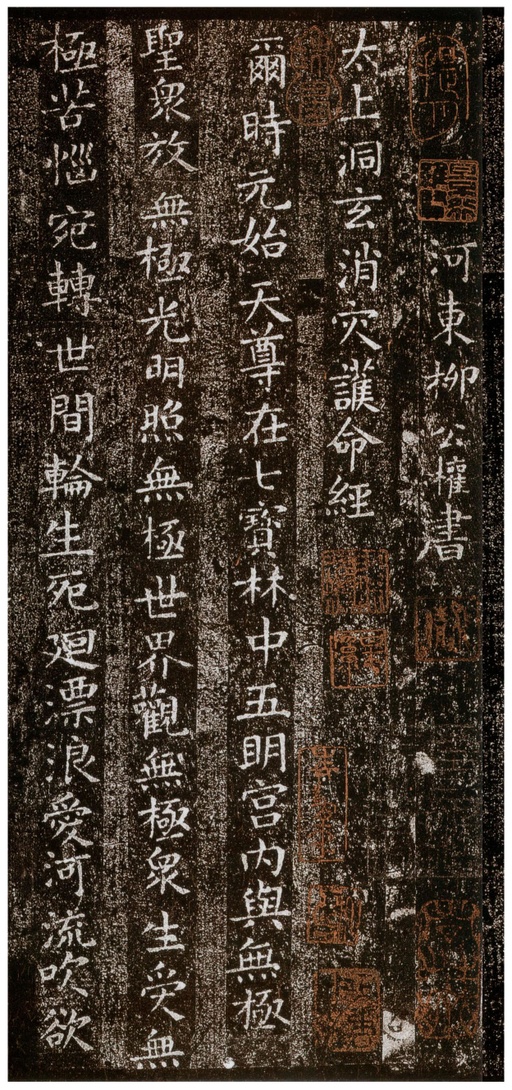 河東柳公權書
太上洞玄消灾護命經
爾時元始天尊在七寶林中五明宫内與無極
聖衆放無極光明照無極世界觀無極衆生受無
極苦惱宛轉世間輪生死𢌞漂浪愛河流吹欲